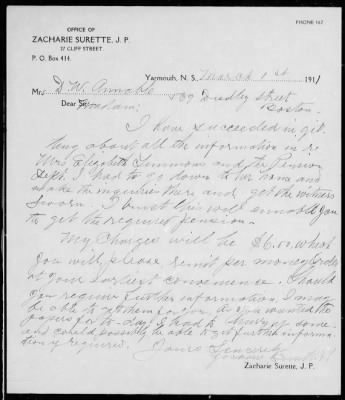 PHONE 167
OFFICE OF
ZACHARIE SURETTE, J. P.
27 CLIFF STREET
P. O. Box 414.
Yarmouth, N. S. March 1st 1911
Mrs D. W. Annable 489 Dudley Street
Dear Madam: Boston.
I have succeeded in get
ting about all the information in re
Mrs Elizabeth Simmons and the Pension
Dept. I had to go down to her home and
make the inquiries there and get the witness
sworn. I trust this will enable you
to get the required pension.
My Charges will be $6.50, which
you will please remit per money order
at your earliest convenience. Should
you require further information I may
be able to get them for you. As you wanted the
papers for to-day I had to at some
and could possibly be able to get further informa
tion if required. Yours Sincerely
Zacharie Surette, J. P.